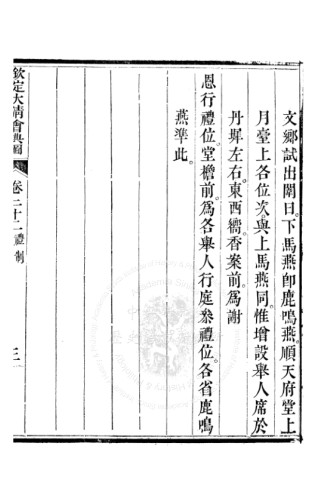 文鄉試出闈日下馬燕卽鹿鳴燕順天府堂上
月臺上各位次與上馬燕同惟增設舉人席於
丹墀左右東西嚮香案前爲謝
恩行禮位堂檐前爲各舉人行庭參禮位各省鹿鳴
燕準此
欽定大清會典圖
卷二十二 禮制
三